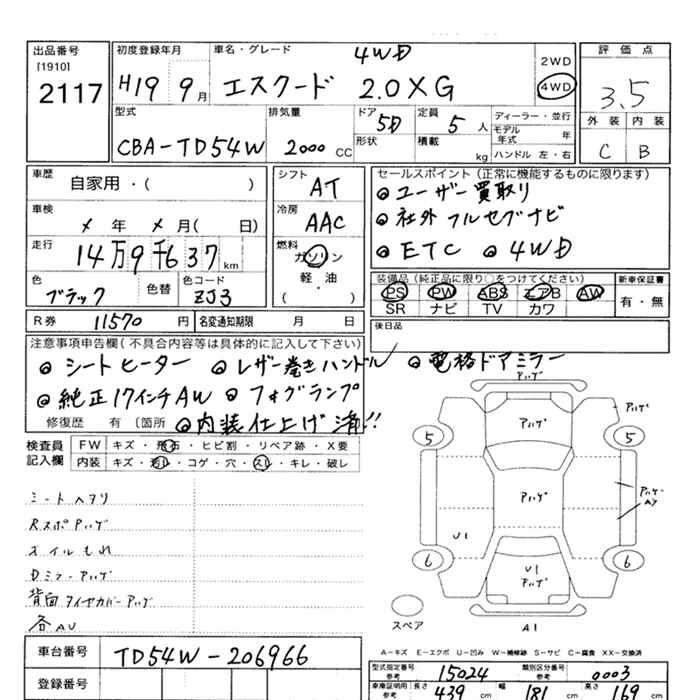 出品番号
[1910]
2117
初度登録年月
H19 9月
車名・グレード
4WD
エスクード 2.0XG
2WD
4WD
評価点
3.5
外装 内装
C B
型式
CBA-TD54W
排気量
2000 CC
ドア
5D
形状
定員
5人
積載
kg
ディーラー・並行
モデル年式 年
ハンドル 左・右
車歴
自家用・( )
車検
メ 年 メ 月( 日)
走行
14万9千637 km
色
ブラック
色替
色コード
ZJ3
シフト
AT
冷房
AAC
燃料
ガソリン
軽・油
( ・ )
セールスポイント(正常に機能するものに限ります)
◎ユーザー買取り
◎社外フルセグナビ
◎ETC ◎4WD
装備品(純正品に限り○をつけてください)
PS PW ABS エアB AW
SR ナビ TV カワ
新車保証書
有・無
R券 11570 円
名変通知期限 月 日
後日品
注意事項申告欄(不具合内容等は具体的に記入して下さい)
◎シートヒーター ◎レザー巻きハンドル ◎電格ドアミラー
◎純正17インチAW ◎フォグランプ
修復歴 有 〔箇所
◎内装仕上げ済!!
検査員記入欄
FW キズ・飛石・ヒビ割・リペア跡・X要
内装 キズ・汚レ・コゲ・穴・スレ・キレ・破レ
シートヘタリ
Rスポアハゲ
スイルもれ
Dミラーアハゲ
背面タイヤカバーアハゲ
各AU
アハゲ
アハゲ
アハゲ
5
5
アハゲ
アハゲ
AY
U1
6
6
U1
アハゲ
スペア
A1
A-キズ E-エクボ U-凹み W-補修跡 S-サビ C-腐食 XX-交換済
車台番号
TD54W-206966
登録番号
型式指定番号
参考
15024
類別区分番号
参考
0003
車庫証明用
参考
長さ 439 cm
幅 181 cm
高さ 169 cm